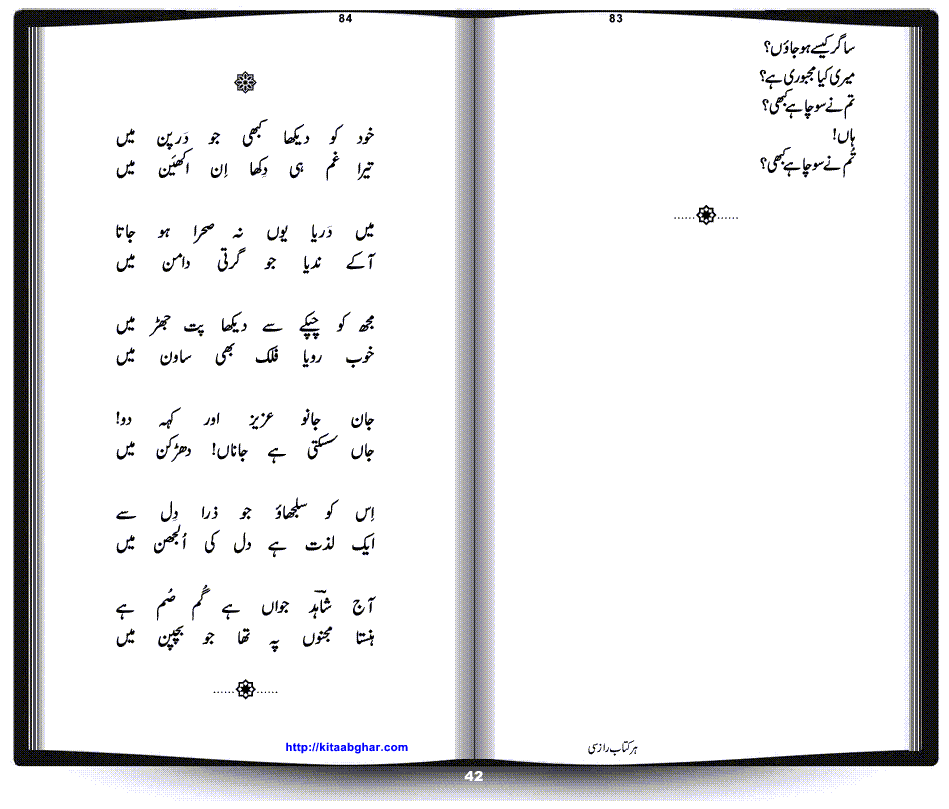 83
ساگر کیسے ہو جاؤں؟
میری کیا مجبوری ہے؟
تم نے سوچا ہے کبھی؟
ہاں!
تُم نے سوچا ہے کبھی؟
ہر کتاب رازسی
84
خود کو دیکھا کبھی جو دَرپن میں
تیرا غم ہی دِکھا اِن اکھیَن میں
میں دَریا یوں نہ صحرا ہو جاتا
آکے ندیا جو گرتی دامن میں
مجھ کو چپکے سے دیکھا پت جھڑ میں
خوب رویا فلک بھی ساون میں
جان جانو عزیز اور کہہ دو!
جاں سسکتی ہے جاناں! دھڑکن میں
اِس کو سلجھاؤ جو ذرا دِل سے
ایک لذت ہے دل کی اُلجھن میں
آج شاہدؔ جواں ہے گُم صُم ہے
ہنستا مجنوں پہ تھا جو بچپن میں
http://kitaabghar.com
42